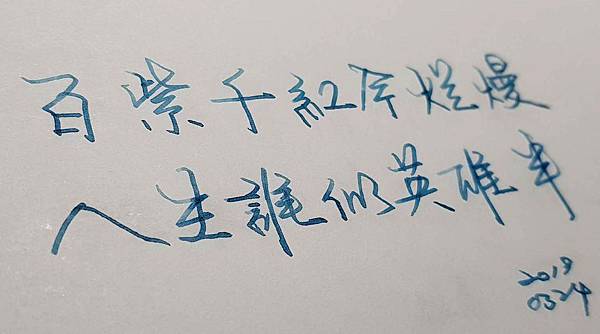 百紫千紅年爛熳
人生誰似英雄半
2019
0324